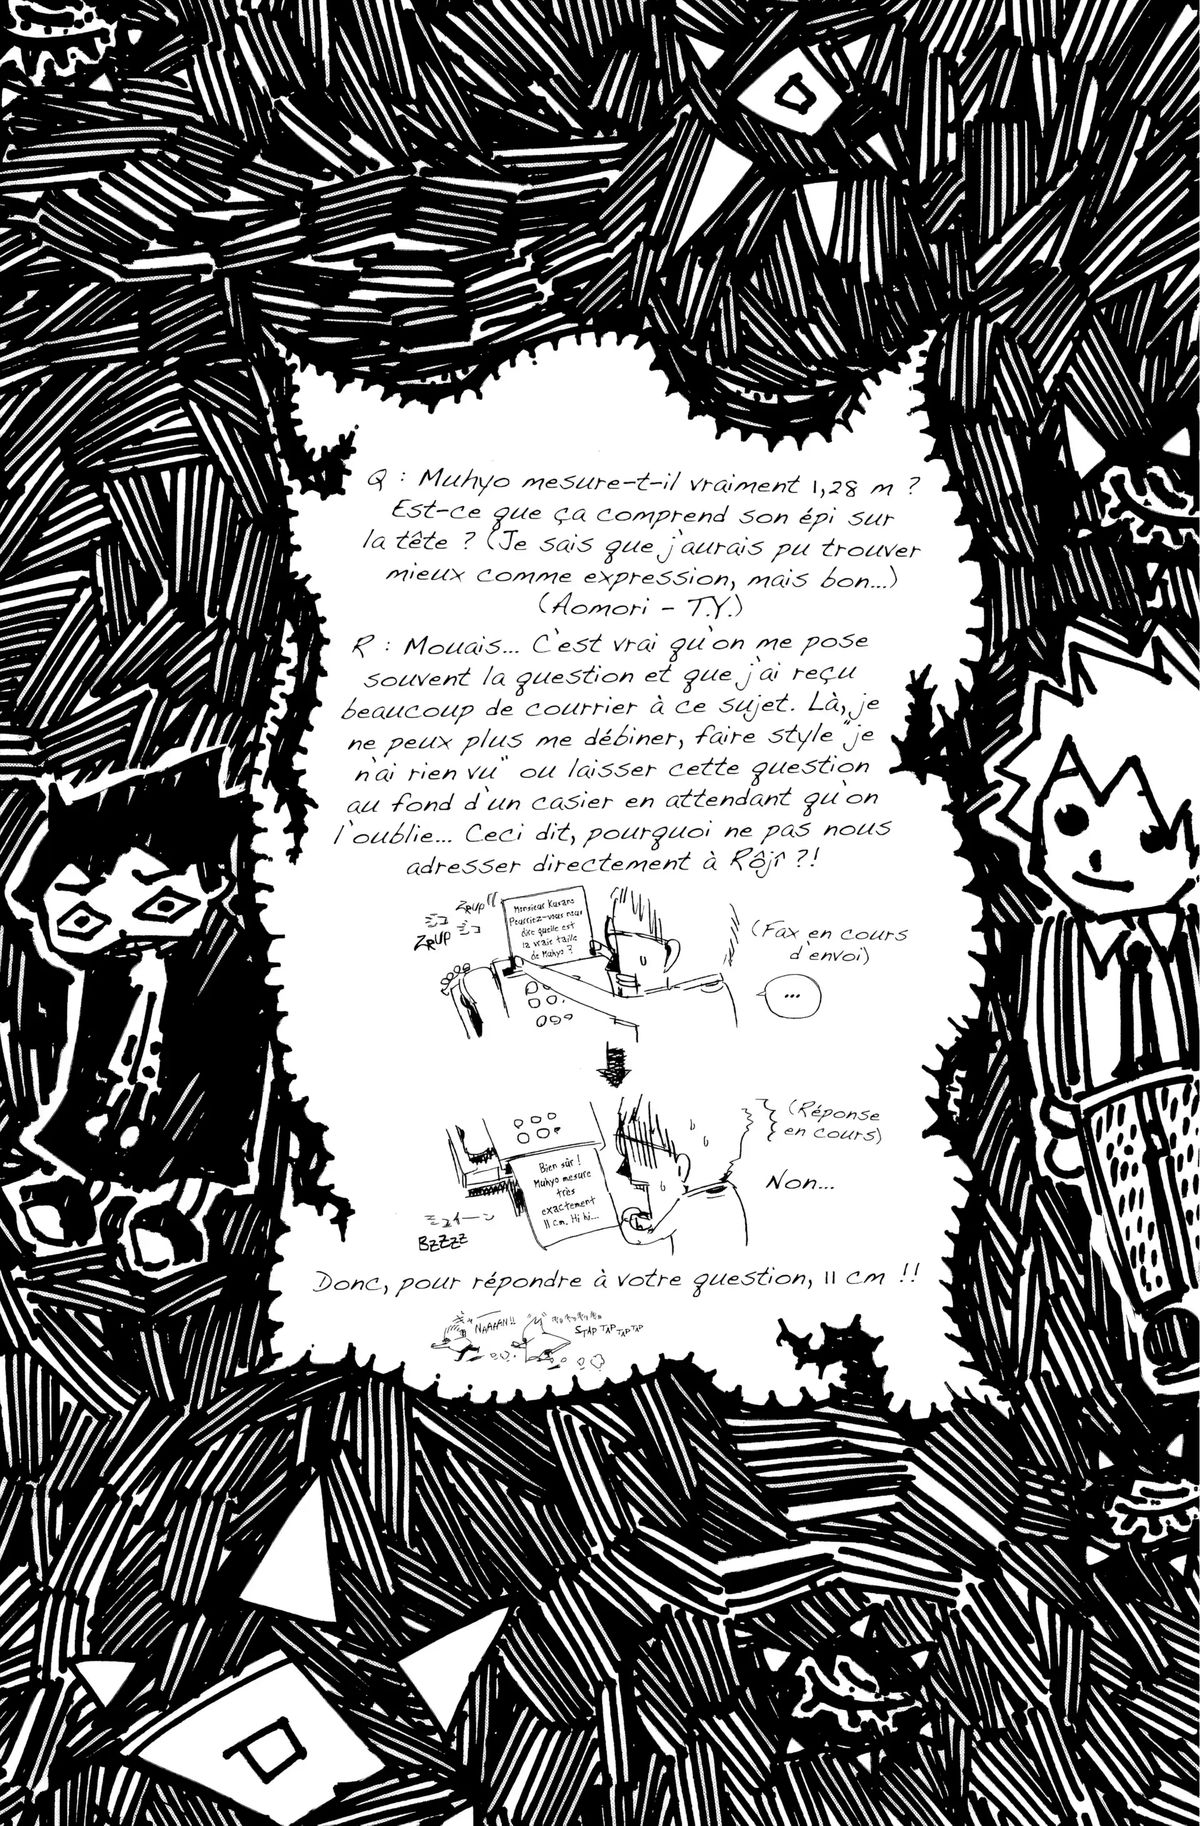 Q : Muhyo mesure-t-il vraiment 1,28 m ?
Est-ce que ça comprend son épi sur
la tête ? (Je sais que j'aurais pu trouver
mieux comme expression, mais bon...)
(Aomori - T.Y.)
R : Mouais... C'est vrai qu'on me pose
souvent la question et que j'ai reçu
beaucoup de courrier à ce sujet. Là, je
ne peux plus me débiner, faire style "je
n'ai rien vu" ou laisser cette question
au fond d'un casier en attendant qu'on
l'oublie... Ceci dit, pourquoi ne pas nous
adresser directement à Rôjî ?!
ZRUP
ZRUP
Monsieur Kusano
Pourriez-vous nous
dire quelle est
la vraie taille
de Muhyo ?
(Fax en cours
d'envoi)
...
(Réponse
en cours)
Bien sûr !
Muhyo mesure
très
exactement
11 cm. Hi hi...
Non...
BZZZZ
Donc, pour répondre à votre question, 11 cm !!
NAAAAN!!
STAP TAP TAP TAP